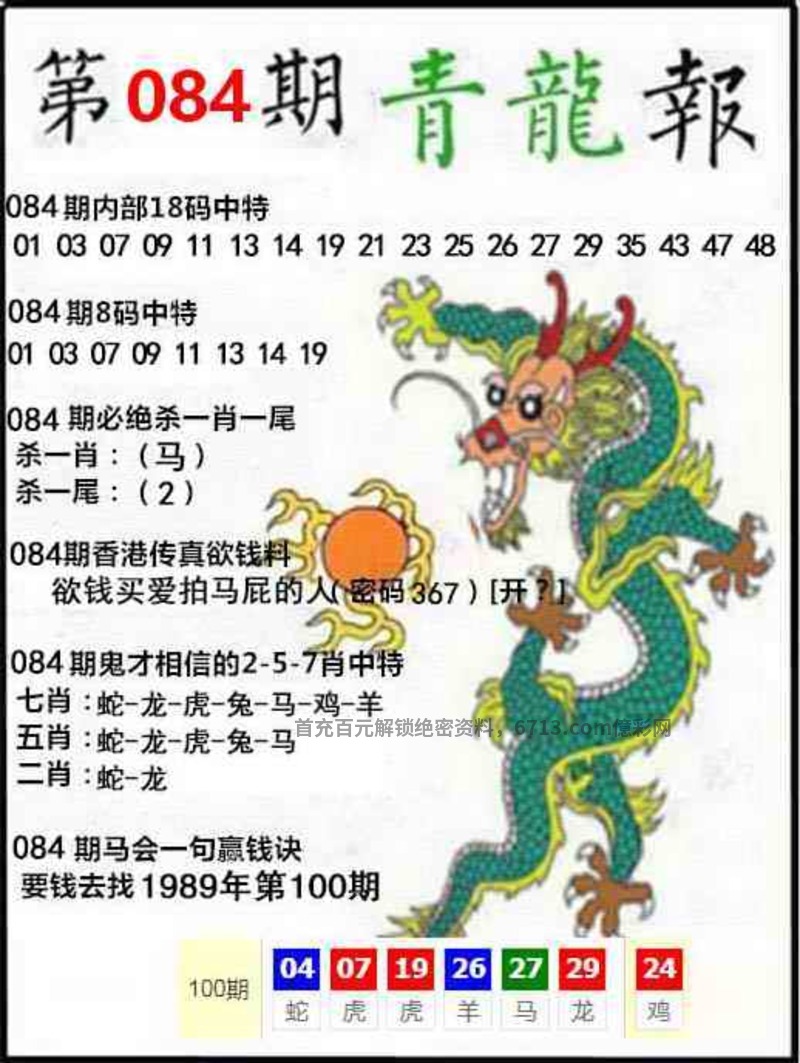 第084期青龍報
084期内部18码中特
01 03 07 09 11 13 14 19 21 23 25 26 27 29 35 43 47 48
084期8码中特
01 03 07 09 11 13 14 19
084 期必绝杀一肖一尾
杀一肖：（马）
杀一尾：（2）
084期香港传真欲钱料
欲钱买爱拍马屁的人(密码367)[开？]
084期鬼才相信的2-5-7肖中特
七肖：蛇-龙-虎-兔-马-鸡-羊
首充百元解锁绝密资料，6713.com億彩网
五肖：蛇-龙-虎-兔-马
二肖：蛇-龙
084 期马会一句赢钱诀
要钱去找1989年第100期
100期 04 07 19 26 27 29 24
蛇 虎 虎 羊 马 龙 鸡